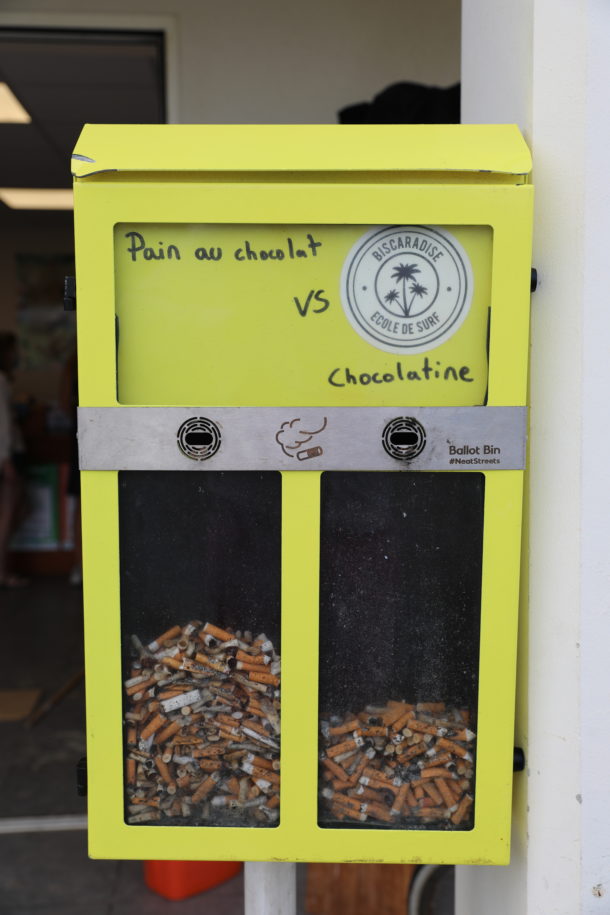 Pain au chocolat
VS
BISCARADISE
ECOLE DE SURF
chocolatine
Ballot Bin
#NeatStreets